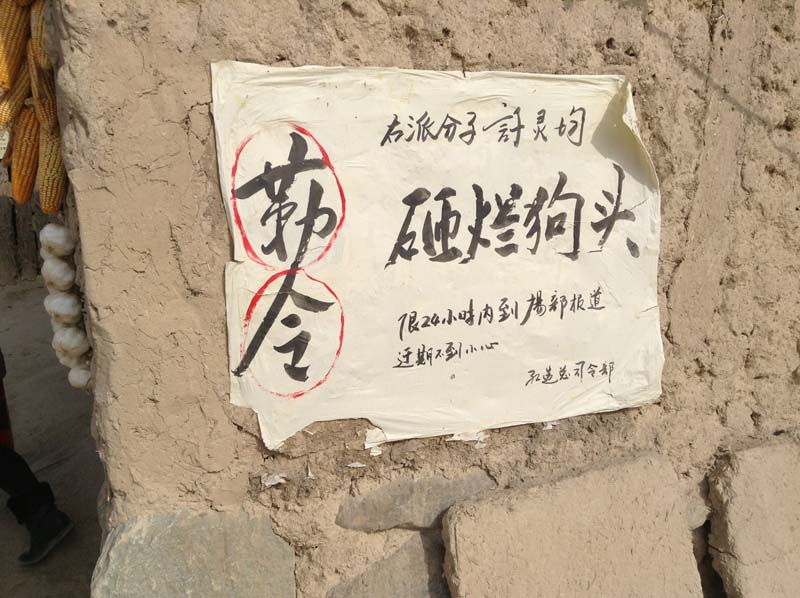 勒令
右派分子 許灵均
砸烂狗头
限24小時内到場部报道
过期不到小心
红造总司令部